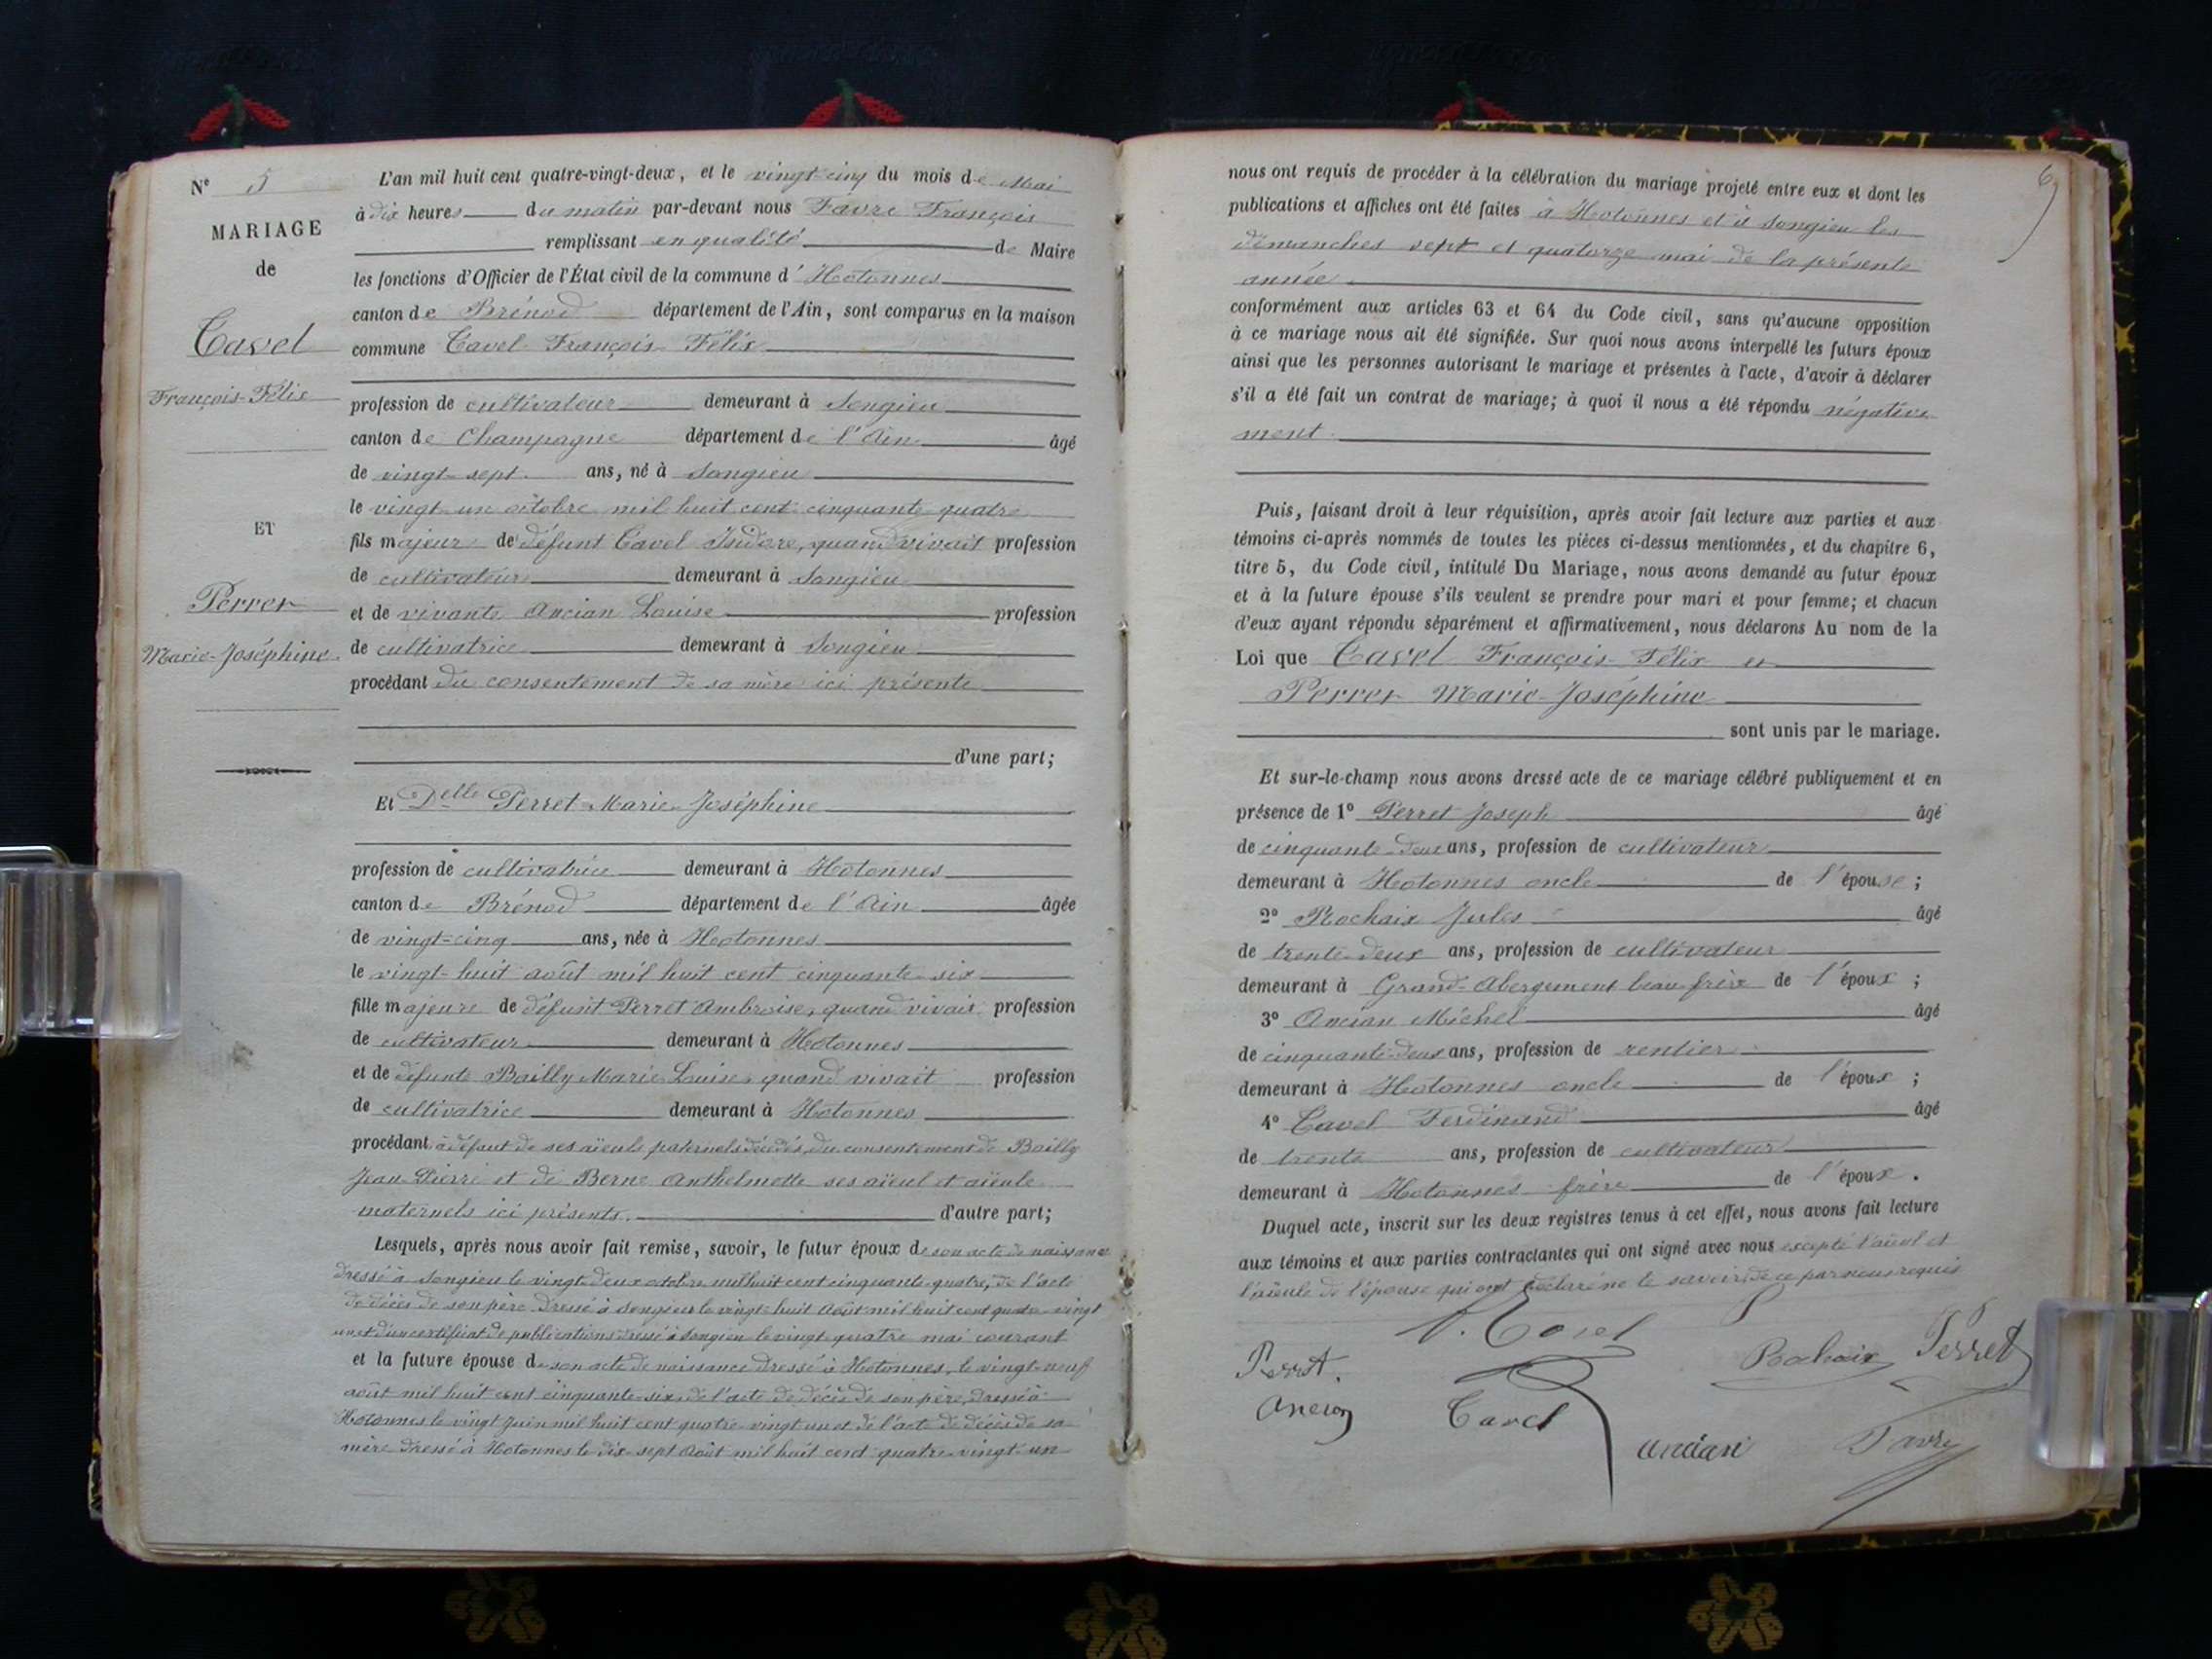 N° 5
MARIAGE
de
Cavel
François-Félix
ET
Perret
Marie-Joséphine
L'an mil huit cent quatre-vingt-deux, et le vingt-cinq du mois de Mai
à dix heures du matin par-devant nous Favre François
remplissant en qualité de Maire
les fonctions d'Officier de l'État civil de la commune d'Hotonnes
canton de Brénod département de l'Ain, sont comparus en la maison
commune Cavel François Félix
profession de cultivateur demeurant à Songieu
canton de Champagne département de l'Ain âgé
de vingt-sept ans, né à Songieu
le vingt un octobre mil huit cent cinquante quatre
fils majeur de défunt Cavel Isidore, quand vivait profession
de cultivateur demeurant à Songieu
et de vivante Ancian Louise profession
de cultivatrice demeurant à Songieu
procédant du consentement de sa mère ici présente
d'une part;
Et Delle Perret Marie-Joséphine
profession de cultivatrice demeurant à Hotonnes
canton de Brénod département de l'Ain âgée
de vingt-cinq ans, née à Hotonnes
le vingt-huit août mil huit cent cinquante-six
fille majeure de défunt Perret Ambroise, quand vivait profession
de cultivateur demeurant à Hotonnes
et de défunte Bailly Marie Louise, quand vivait profession
de cultivatrice demeurant à Hotonnes
procédant à défaut de ses aïeuls paternels décédés, du consentement de Bailly
Jean-Pierre et de Berne Anthelmette ses aïeul et aïeule
maternels ici présents. d'autre part;
Lesquels, après nous avoir fait remise, savoir, le futur époux de son acte de naissance
dressé à Songieu le vingt-deux octobre mil huit cent cinquante-quatre, de l'acte
de décès de son père dressé à Songieu le vingt-huit Août mil huit cent quatre-vingt
un et d'un certificat de publications dressé à Songieu le vingt quatre mai courant
et la future épouse de son acte de naissance dressé à Hotonnes, le vingt-neuf
août mil huit cent cinquante-six, de l'acte de décès de son père, dressé à
Hotonnes le vingt Juin mil huit cent quatre-vingt un et de l'acte de décès de sa
mère dressé à Hotonnes le dix-sept Août mil huit cent quatre-vingt-un
6
nous ont requis de procéder à la célébration du mariage projeté entre eux et dont les
publications et affiches ont été faites à Hotonnes et à Songieu les
dimanches sept et quatorze mai de la présente
année
conformément aux articles 63 et 64 du Code civil, sans qu'aucune opposition
à ce mariage nous ait été signifiée. Sur quoi nous avons interpellé les futurs époux
ainsi que les personnes autorisant le mariage et présentes à l'acte, d'avoir à déclarer
s'il a été fait un contrat de mariage; à quoi il nous a été répondu négative
ment.
Puis, faisant droit à leur réquisition, après avoir fait lecture aux parties et aux
témoins ci-après nommés de toutes les pièces ci-dessus mentionnées, et du chapitre 6,
titre 5, du Code civil, intitulé Du Mariage, nous avons demandé au futur époux
et à la future épouse s'ils veulent se prendre pour mari et pour femme; et chacun
d'eux ayant répondu séparément et affirmativement, nous déclarons Au nom de la
Loi que Cavel François-Félix et
Perret Marie-Joséphine
sont unis par le mariage.
Et sur-le-champ nous avons dressé acte de ce mariage célébré publiquement et en
présence de 1° Perret Joseph âgé
de cinquante-deux ans, profession de cultivateur
demeurant à Hotonnes oncle de l'épouse;
2° Rochaix Jules âgé
de trente-deux ans, profession de cultivateur
demeurant à Grand-Abergement beau-frère de l'époux;
3° Ancian Michel âgé
de cinquante-deux ans, profession de rentier
demeurant à Hotonnes oncle de l'époux;
4° Cavel Ferdinand âgé
de trente ans, profession de cultivateur
demeurant à Hotonnes frère de l'époux.
Duquel acte, inscrit sur les deux registres tenus à cet effet, nous avons fait lecture
aux témoins et aux parties contractantes qui ont signé avec nous excepté l'aïeul et
l'aïeule de l'épouse qui ont déclaré ne le savoir de ce par nous requis
Cavel
Perret.
Rochaix
Perret
Cavel
Ancian
Favre